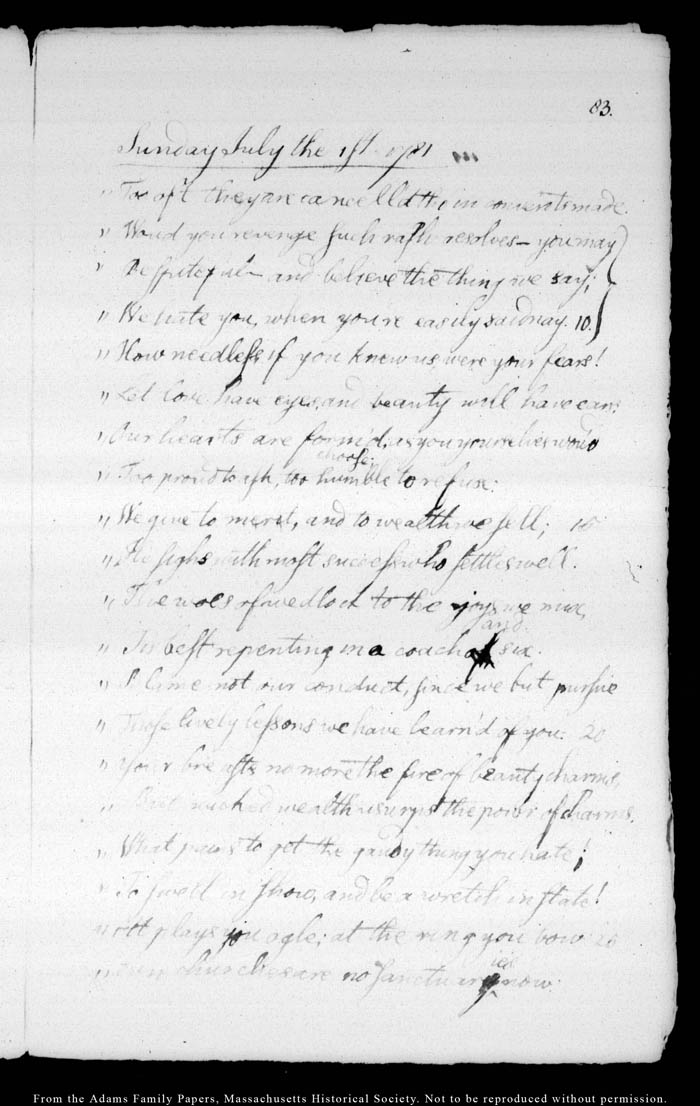 83.
Sunday July the 1st 1781
" Too oft they are cancell'd tho in convents made.
" Would you revenge such rash resolves — you may
" Be spiteful — and believe the thing we say;
" We hate you, when you're easily said nay. 10.
" How needless, if you knew us, were your fears!
" Let love have eyes, and beauty will have ears.
" Our hearts are form'd, as you yourselves would
choose.
" Too proud to ask, too humble to refuse:
" We give to merit, and to wealth we sell; 15
" He sighs with most success who settles well.
" The woes of wedlock to the joys we mix,
and
" Tis best repenting in a coach six.
" Blame not our conduct, since we but pursue
" Those lively lessons we have learn'd of you: 20
" Your breasts no more the fire of beauty charms,
" But wicked wealth usurps the power of charms.
" What pains to get the gaudy thing you hate;
" To swell in show, and be a wretch in state!
" At plays you ogle; at the ring you bow 25
ies
" Even churches are no Sanctuary now:
From the Adams Family Papers, Massachusetts Historical Society. Not to be reproduced without permission.